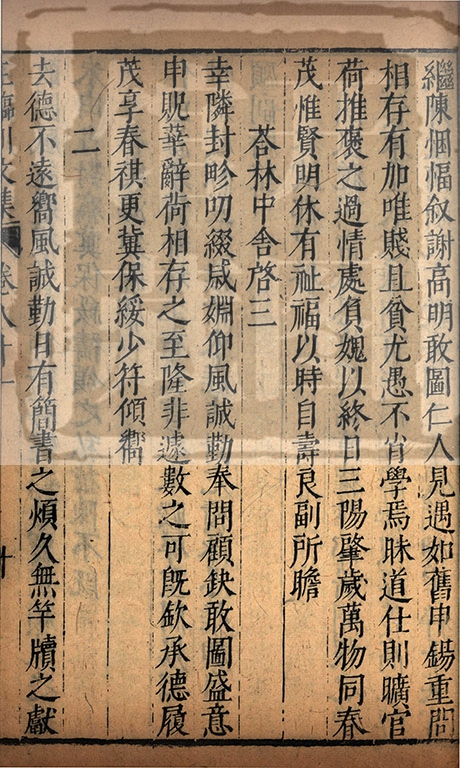 繼陳悃愊叙謝高明敢圖仁人見遇如舊申錫重問
相存有加唯賤且貧尤愚不肖學焉昧道仕則曠官
荷推褒之過情處負媿以終日三陽肇歲萬物同春
茂惟賢明休有祉福以時自壽良副所瞻
荅林中舎啓三
幸隣封畛叨綴戚姻仰風誠勤奉問顧缺敢圖盛意
申貺華辭荷相存之至隆非遽數之可旣欽承德履
茂享春祺更冀保綏少符傾嚮
二
去德不遠嚮風誠勤日有簡書之煩久無竿牘之獻
王臨川文集 卷八十一 十